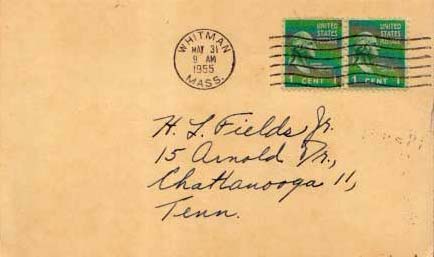 WHITMAN
MAY 31
9 AM
1955
MASS.
UNITED
STATES
POSTAGE
1 CENT 1
UNITED
STATES
POSTAGE
1 CENT 1
H. L. Fields Jr.
15 Arnold Dr.,
Chattanooga 11,
Tenn.